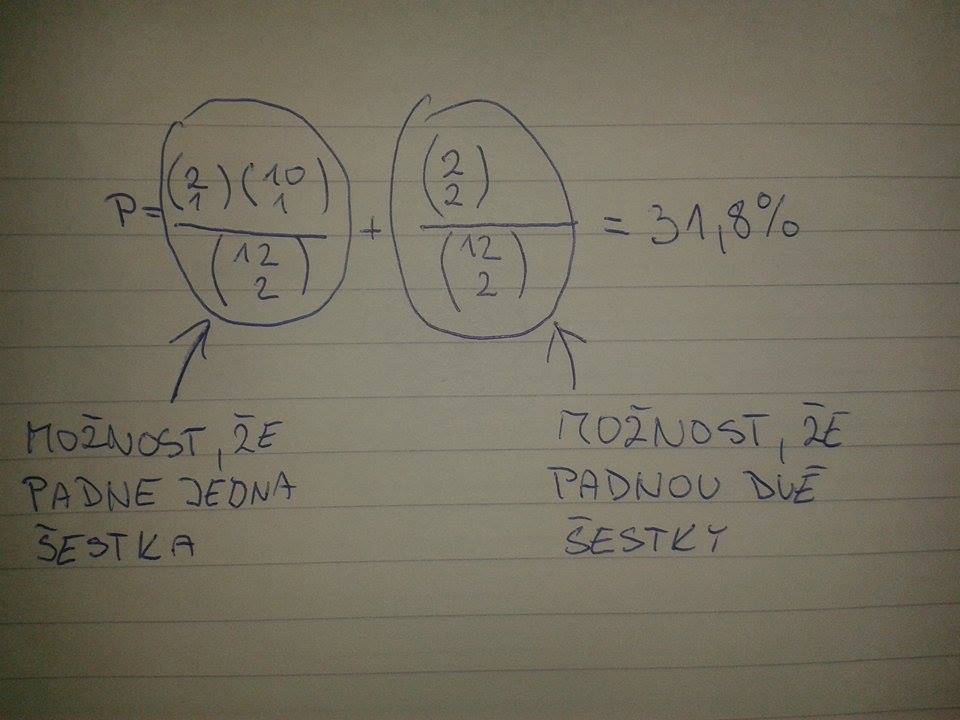 P = \frac{\binom{2}{1}\binom{10}{1}}{\binom{12}{2}} + \frac{\binom{2}{2}}{\binom{12}{2}} = 31,8%
MOŽNOST, ŽE
PADNE JEDNA
ŠESTKA
MOŽNOST, ŽE
PADNOU DVĚ
ŠESTKY